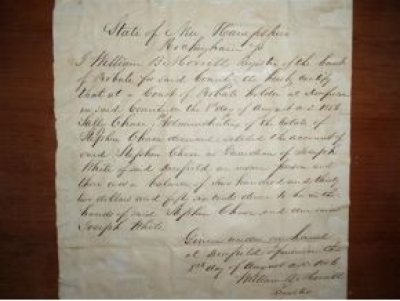 State of New Hampshire
Rockingham ss
I William B. Morrill Register of the Court
of Probate for said County, do hereby certify
that at a Court of Probate holden at Deerfield
in said County on the 8th day of August A.D. 1856
Sally Chase Administratrix of the Estate of
Stephen Chase deceased settled the account of
said Stephen Chase as Guardian of Joseph
White of said Deerfield an insane person and
there was a balance of hundred and thirty
two dollars and fifty six cents due to be in the
hands of said Stephen Chase and due said
Joseph White.
Given under my hand
at Deerfield this
8th day of August A.D. 1856
William B. Morrill
Register